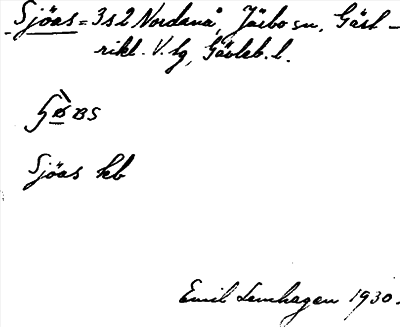 Sjöas = 3 s 2 Nordanå, Järbo sn, Gästrikl. V. tg, Gävleb. l.
Sjöas kb
Emil Lemhagen 1930.